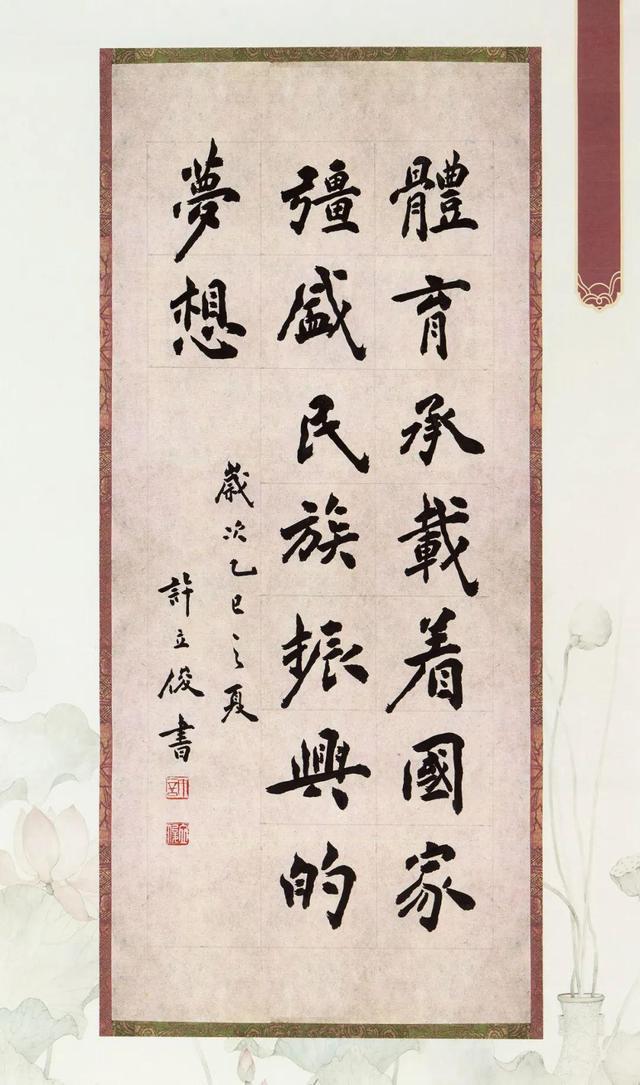 體育承載着國家
彊盛民族振興的
夢想
歲次乙巳之夏
許立俊書